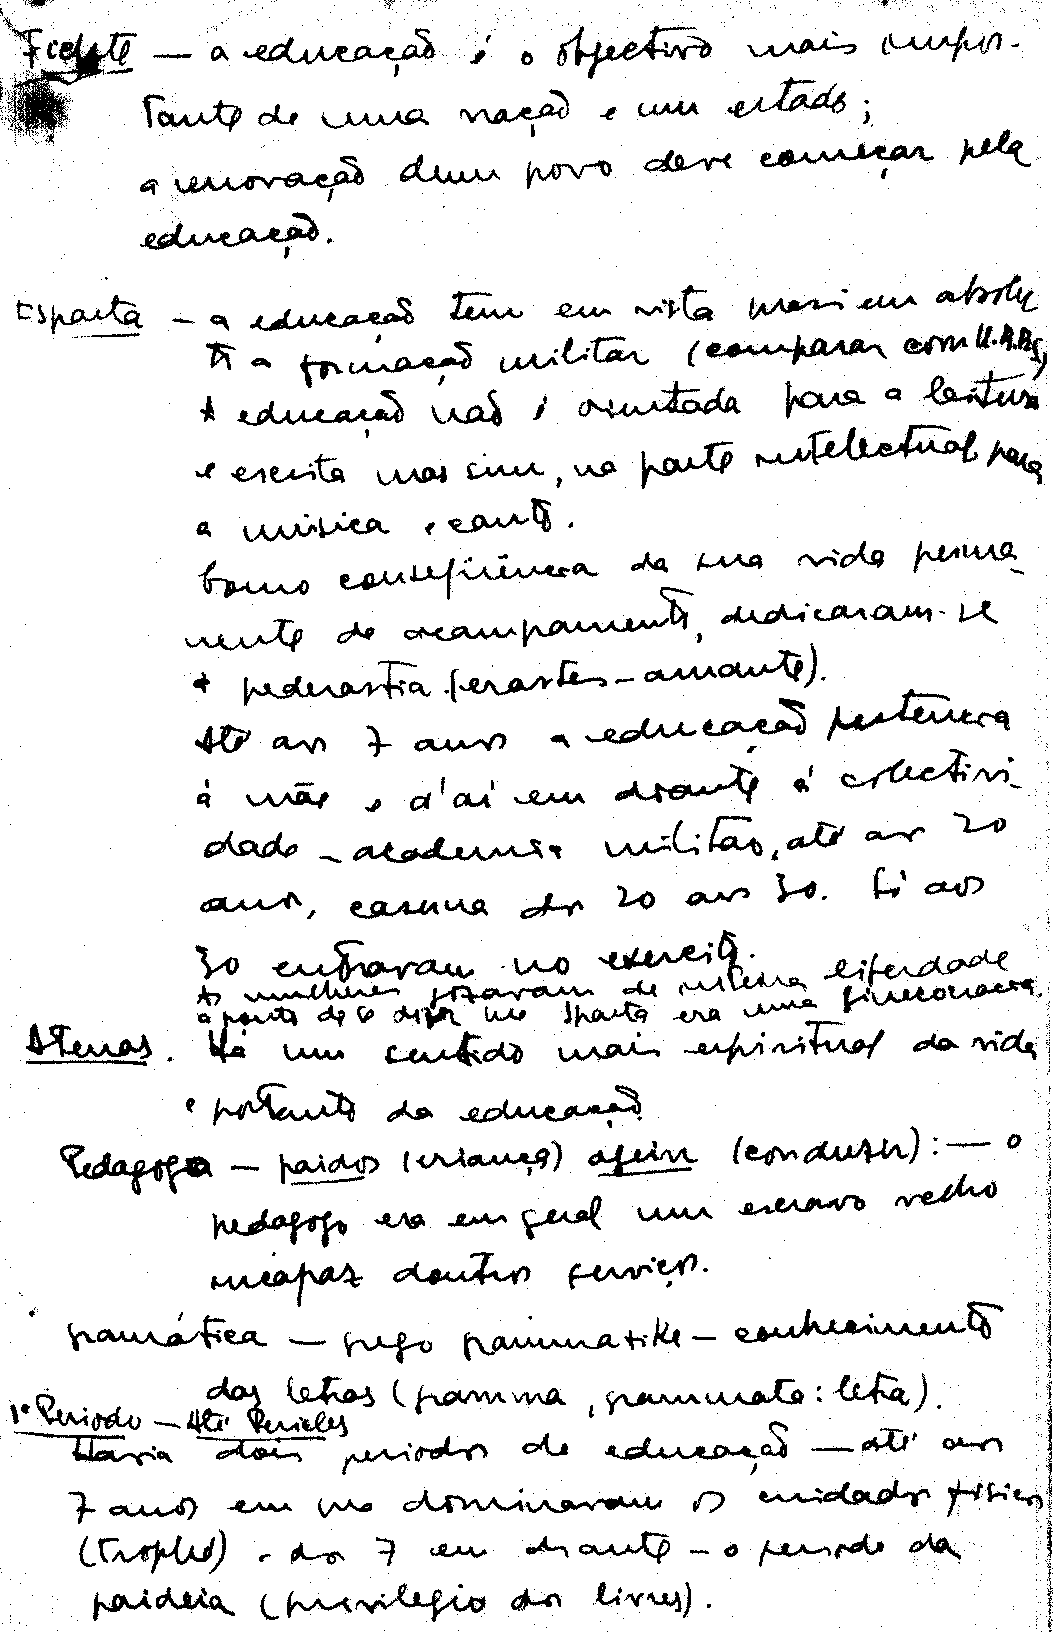 Fichte — a educação é o objectivo mais impor-
tante de uma nação e um estado;
a renovação dum povo deve começar pela
educação.
Esparta — a educação tem em vista
a formação militar (comparar com
A educação não é orientada para a leitura
e escrita mas sim, na parte intelectual para
a música e canto.
Como conseqüência da sua vida perma-
nente de acampamento, dedicaram-se
à pederastia (erastes — amante).
Até aos 7 anos a educação pertencia
à mãe e d'aí em diante à colectivi-
dade — academia militar, até aos 20
anos, caserna dos 20 aos 30. Só aos
30 entravam no exercito.
As mulheres gozavam de inteira liberdade
a ponto de se dizer que Sparta era uma ginecocracia.
Atenas. Há um sentido mais espiritual da vida
e portanto da educação
Pedagogo — paidos (criança) agein (conduzir): — o
pedagogo era em geral um escravo velho
incapaz doutros serviços.
gramática — grego grammatike — conhecimento
das letras (gramma, grammata: letra).
1º Periodo — Até Pericles
Havia dois periodos de educação — até aos
7 anos em que dominavam os cuidados fisicos
(trophé) e dos 7 em diante — o periodo da
paideia (privilegio dos livres).